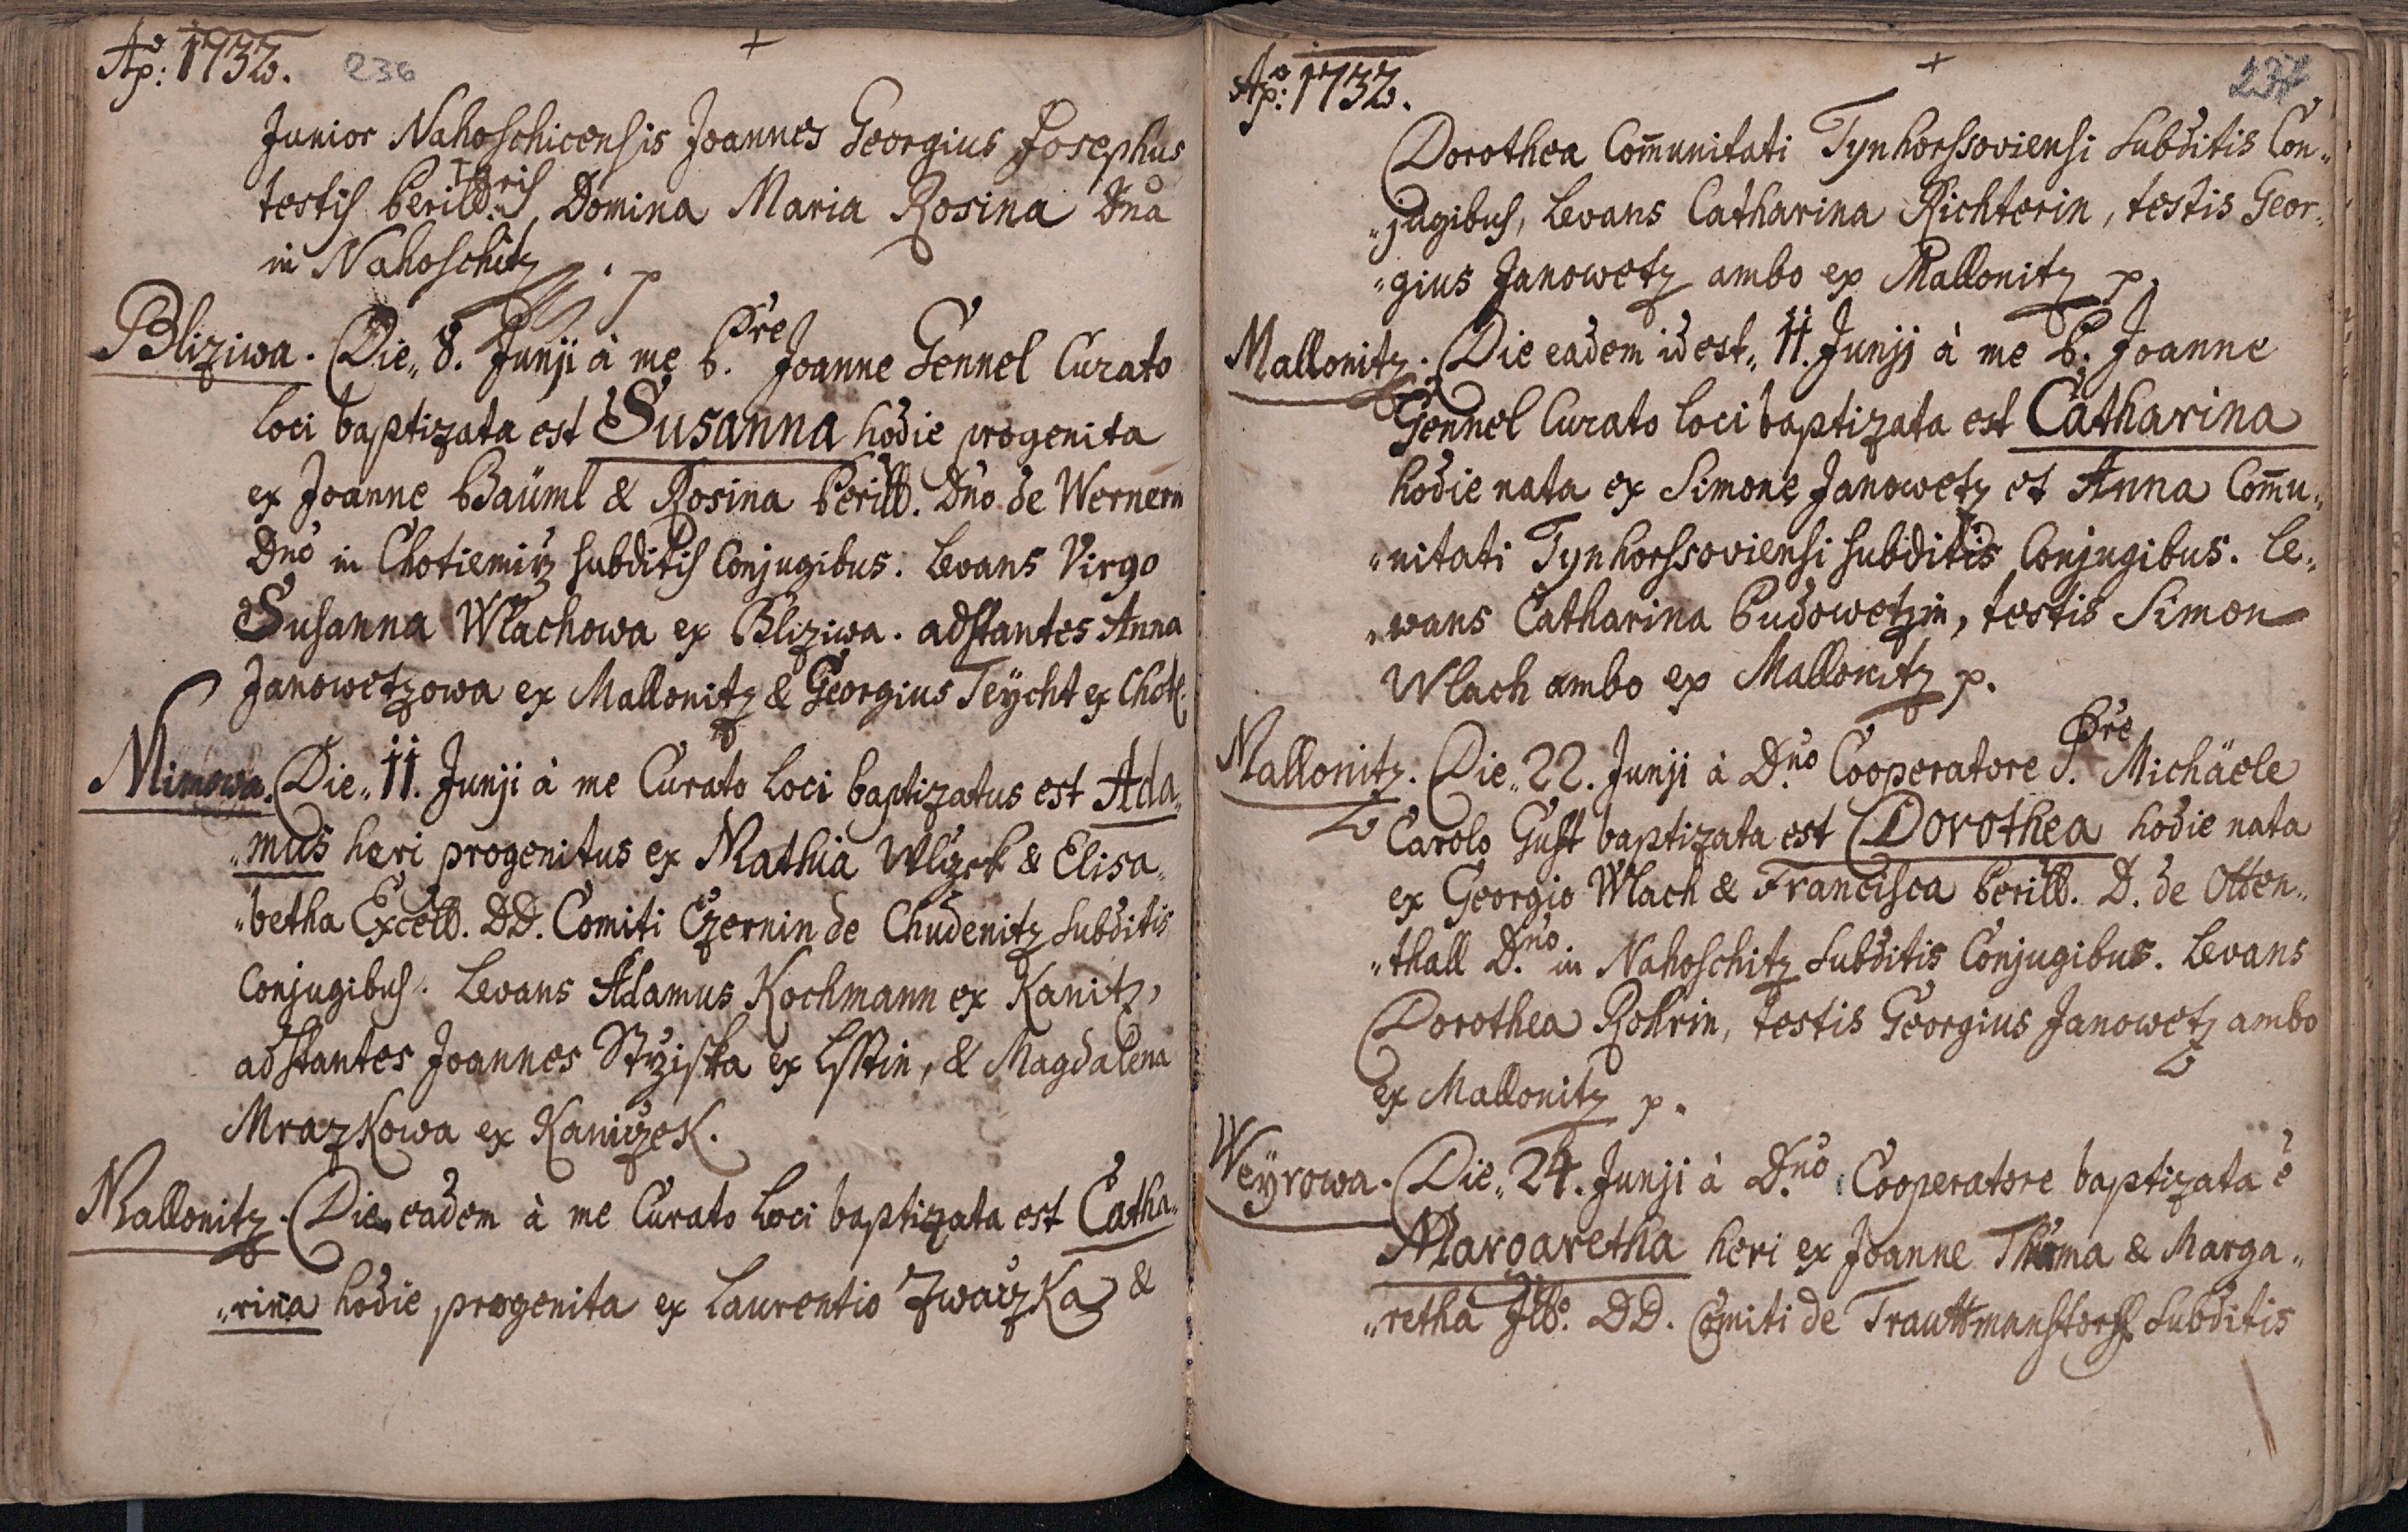 Aõ: 1732. 236
+
Junior Nahoschicensis Joannes Georgius Josephus
testis Perill:ris, Domina Maria Rosina Dna
in Nahoschitz . p
Bliziwa. Die„ 8. Junÿ à me P. Pre Joanne Gennel Curato
Loci baptizata est Susanna hodie progenita
ex Joanne Bäuml & Rosina Perill. Dno de Wernern
Dno in Chotiemirz subditis Conjugibus. Levans Virgo
Susanna Wlachowa ex Bliziwa. adstantes Anna
Janowetzowa ex Mallonitz & Georgius Teÿcht ex Chot.
Mimowa. Die„ 11. Junji à me Curato Loci baptizatus est Ada„
„mus heri progenitus ex Mathia Wlczek & Elisa„
„betha Excell. DD. Comiti Czernin de Chudenitz subditis
Conjugibus. Levans Adamus Kochmann ex Kanitz,
adstantes Joannes ex & Magdalena
Mrazkowa ex Kaniczek.
Mallonitz. Die eadem à me Curato Loci baptizata est Catha„
„rina hodie progenita ex Laurentio Zwaczka &
Aõ: 1732. 237
+
Dorothea Com̄unitati Tynhorssoviensi subditis Con„
„jugibus, Levans Catharina Richterin, testis Geor„
„gius Janowetz ambo ex Mallonitz p.
Mallonitz. Die eadem id est„ 11. Junji à me P. Joanne
Gennel Curato Loci baptizata est Catharina
hodie nata ex Simone Janowetz et Anna Com̄u„
„nitati Tynhorssoviensi subditis Conjugibus. Le„
„wans Catharina Budowetzin, testis Simon
Wlach ambo ex Mallonitz p.
Mallonitz. Die„ 22. Junji à D.no Cooperatore P. Pre Michäele
Carolo Gust baptizata est Dorothea hodie nata
ex Georgio Wlach & Francisca Perill. D. de Otten„
„thall D.no in Nahoschitz subditis Conjugibus. Levans
Dorothea Rohrin, testis Georgius Janowetz ambo
ex Mallonitz p.
Weÿrowa. Die„ 24. Junji à D.no Cooperatore baptizata ẽ
Margaretha heri ex Joanne Thoma & Marga„
„retha Illo. DD. Comiti de Trauttmanstorff subditis